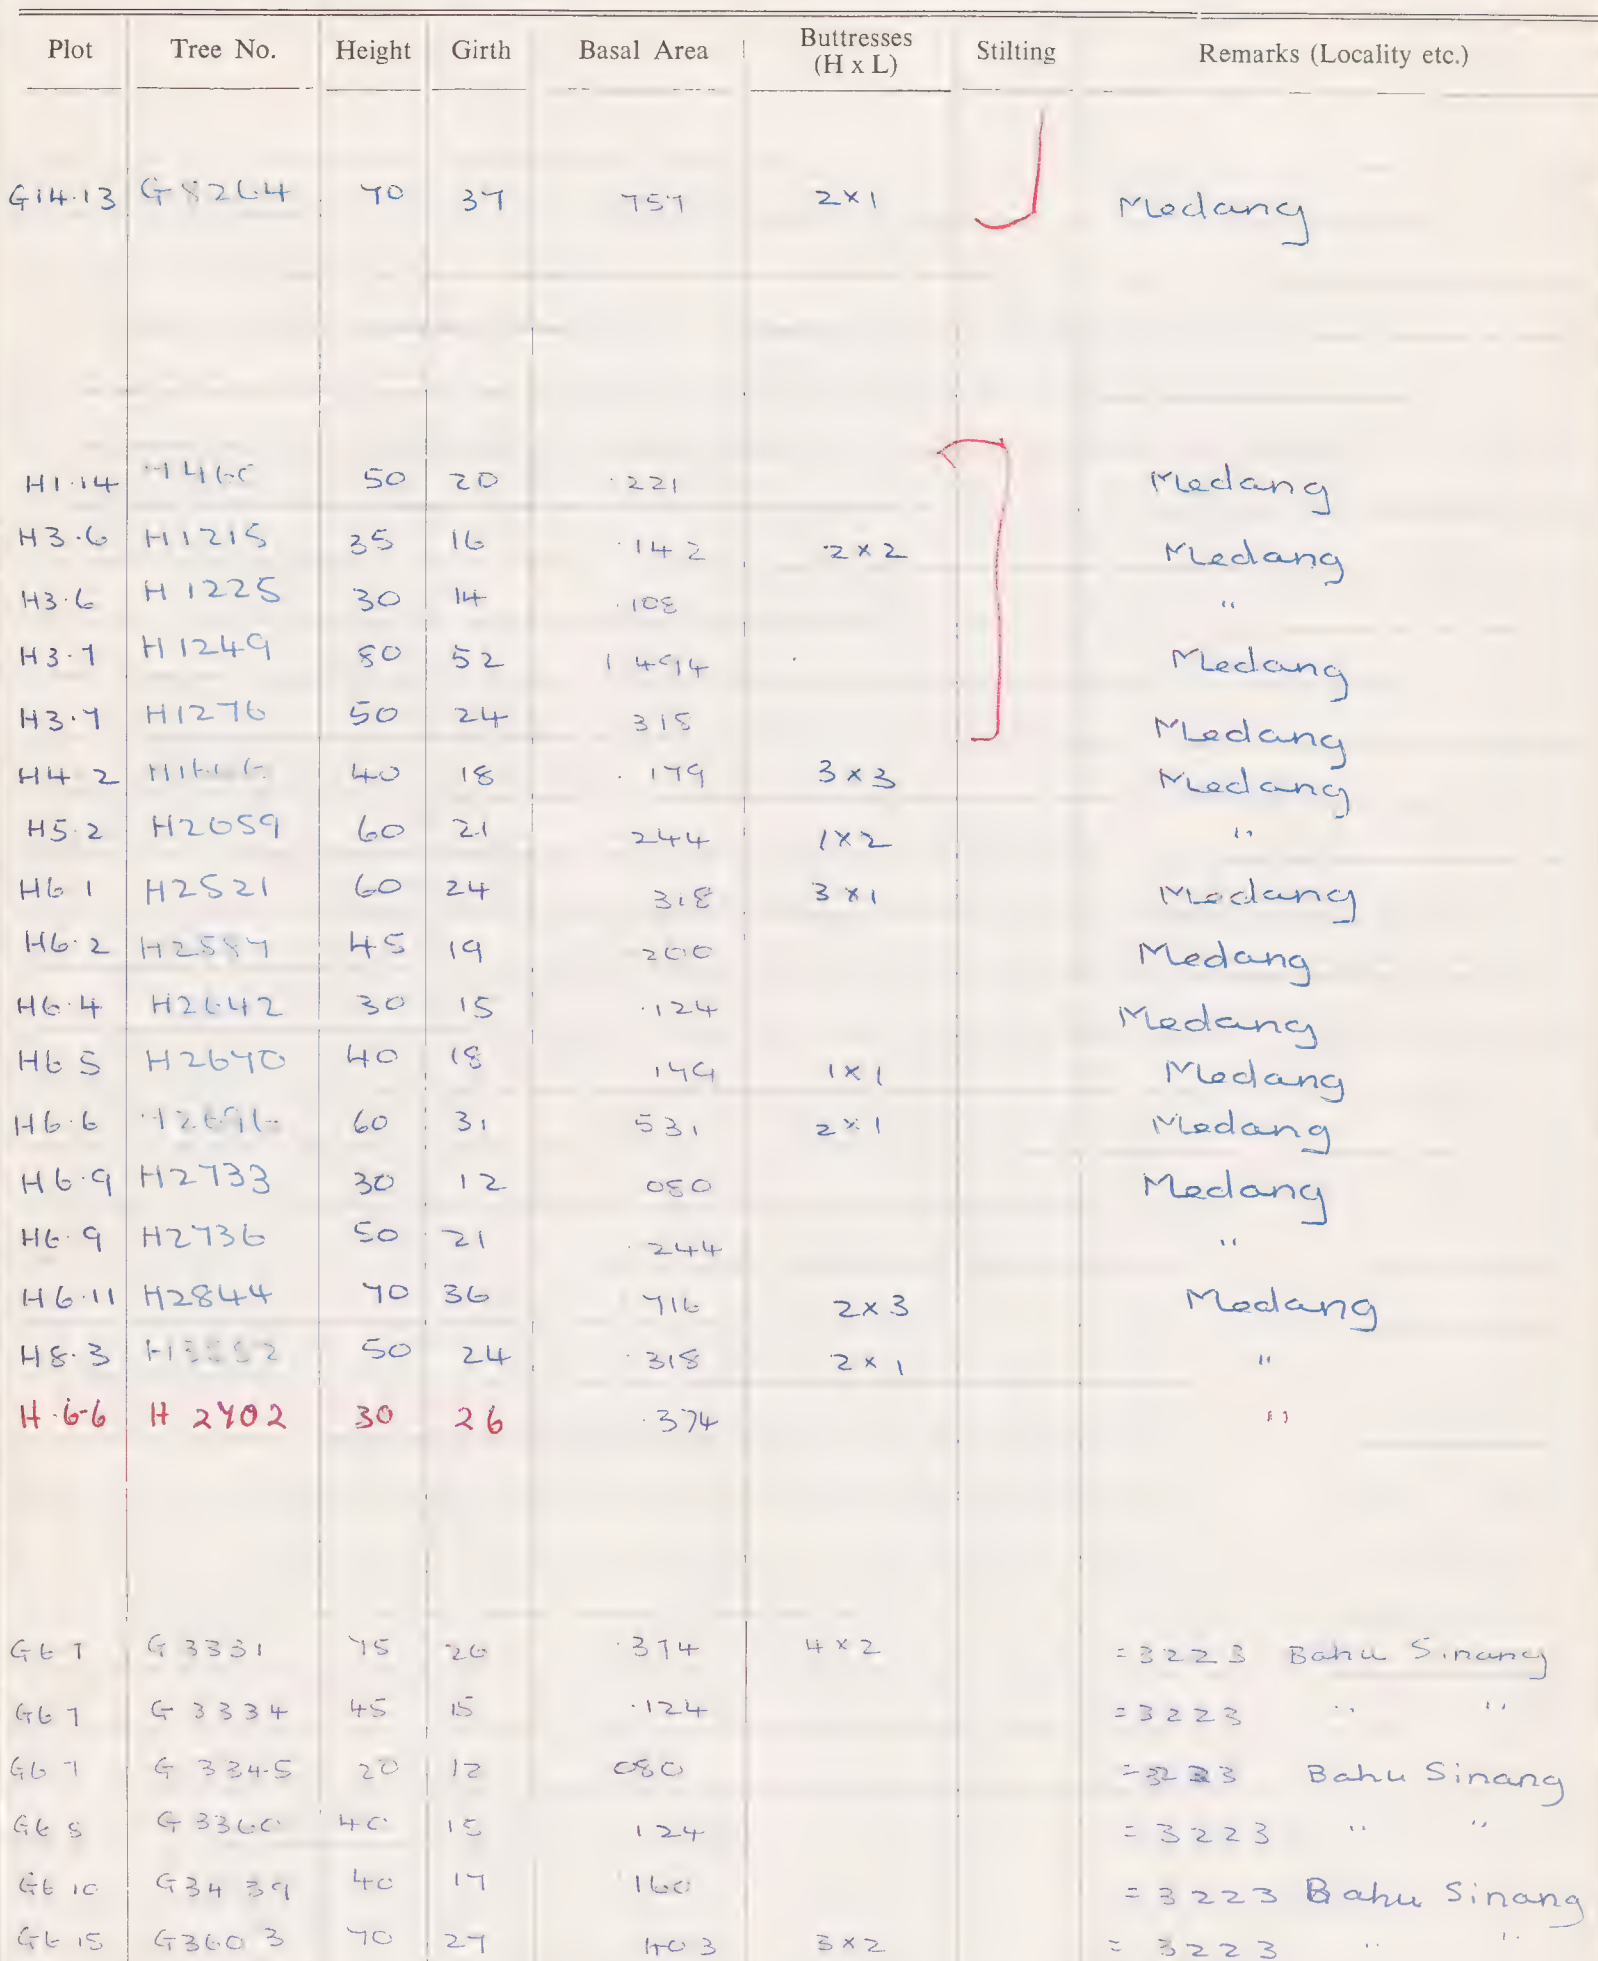 Plot Tree No. Height Girth Basal Area Buttresses (H x L) Stilting Remarks (Locality etc.)
G14.13 G8264 70 37 757 2x1 Medang
H1.14 50 20 .221 Medang
H3.6 H1215 35 16 .142 2x2 Medang
H3.6 H1225 30 14 .108 "
H3.7 H1249 80 52 1 494 Medang
H3.7 H1276 50 24 318 Medang
H4 2 40 18 .179 3x3 Medang
H5.2 H2059 60 21 244 1x2 "
H6 1 H2521 60 24 318 3x1 Medang
H6.2 H2587 45 19 200 Medang
H6.4 H2642 30 15 .124 Medang
H6 5 H2670 40 18 179 1x1 Medang
H6.6 60 31 531 2x1 Medang
H6.9 H2733 30 12 080 Medang
H6.9 H2736 50 21 .244 "
H6.11 H2844 70 36 716 2x3 Medang
H8.3 50 24 .318 2x1 "
H.6-6 H 2702 30 26 .374 "
G6 7 G 3331 75 26 .374 4x2 =3223 Bahu Sinang
G6 7 G 3334 45 15 .124 =3223 " "
G6 7 G 3345 20 12 080 =3223 Bahu Sinang
G6 8 G 3360 40 15 124 =3223 " "
G6 10 G3439 40 17 160 =3223 Bahu Sinang
G6 15 G3603 70 27 403 3x2 =3223 " "